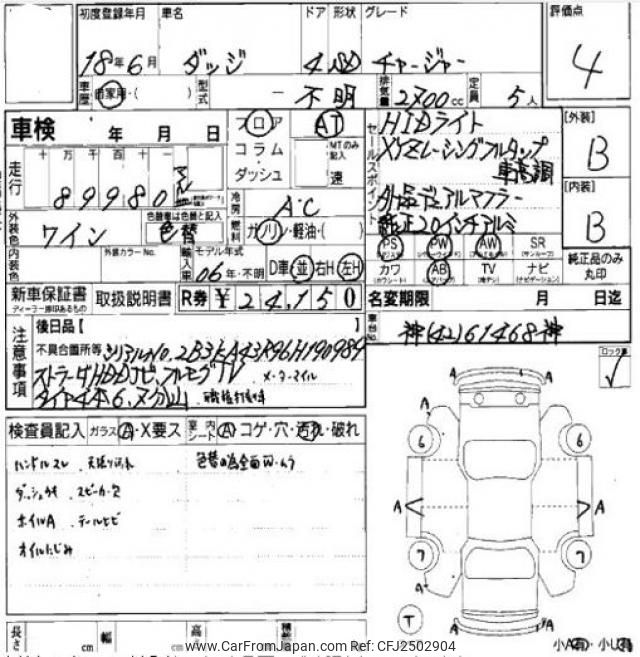 初度登録年月 車名 ドア 形状 グレード 評価点
18年6月 ダッジ 4 SD チャージャー 4
車歴 自家用・( ) 型式 － 不明 排気量 2700cc 定員 5人
車検 年 月 日 フロア AT セールスポイント HIDライト [外装]
コラム MTのみ記入 XYZレーシングフルタップ B
走行 十 万 千 百 十 一 ダッシュ 速 車高調
89980 マイル 冷房 A.C 外品デュアルマフラー [内装]
外装色 ワイン 色替車は色替と記入 色替 燃料 ガソリン・軽油・( ) 純正20インチアルミ B
内装色 外装カラーNo. 輸入車 モデル年式 06年・不明 D車 並 右H 左H
PS PW AW SR (サンルーフ) 純正品のみ丸印
カワ (カワシート) AB TV ナビ (ナビゲーション)
新車保証書 取扱説明書 R券 ¥24,150 名変期限 月 日迄
ディーラー捺印あるもの
注意事項 後日品【 】 車台No. 神(42)61468神
不具合箇所等 シリアルNo. 2B3KA43R96H190989 ロック車
ストラーダHDDナビ、フルセグTV メーターマイル
タイヤ4本6、ヌケ山 職権打刻車
検査員記入 ガラス A・X要ス 室内シート A コゲ・穴・汚れ・破れ
ハンドルスレ 天張り汚れ 色替の為全面W・ムラ
ダッシュキズ スピーカー欠
ホイルA テールヒビ
オイルにじみ
A
A A
6 6
A A
7 7
A A
T A
長さ cm 幅 cm 高さ cm 積載
小A有・小U有
www.CarFromJapan.com Ref: CFJ2502904